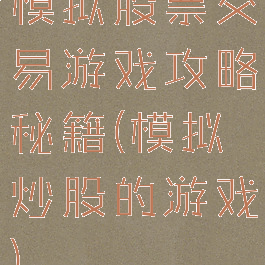 模拟股票交
易游戏攻略
秘籍(模拟
炒股的游戏
)